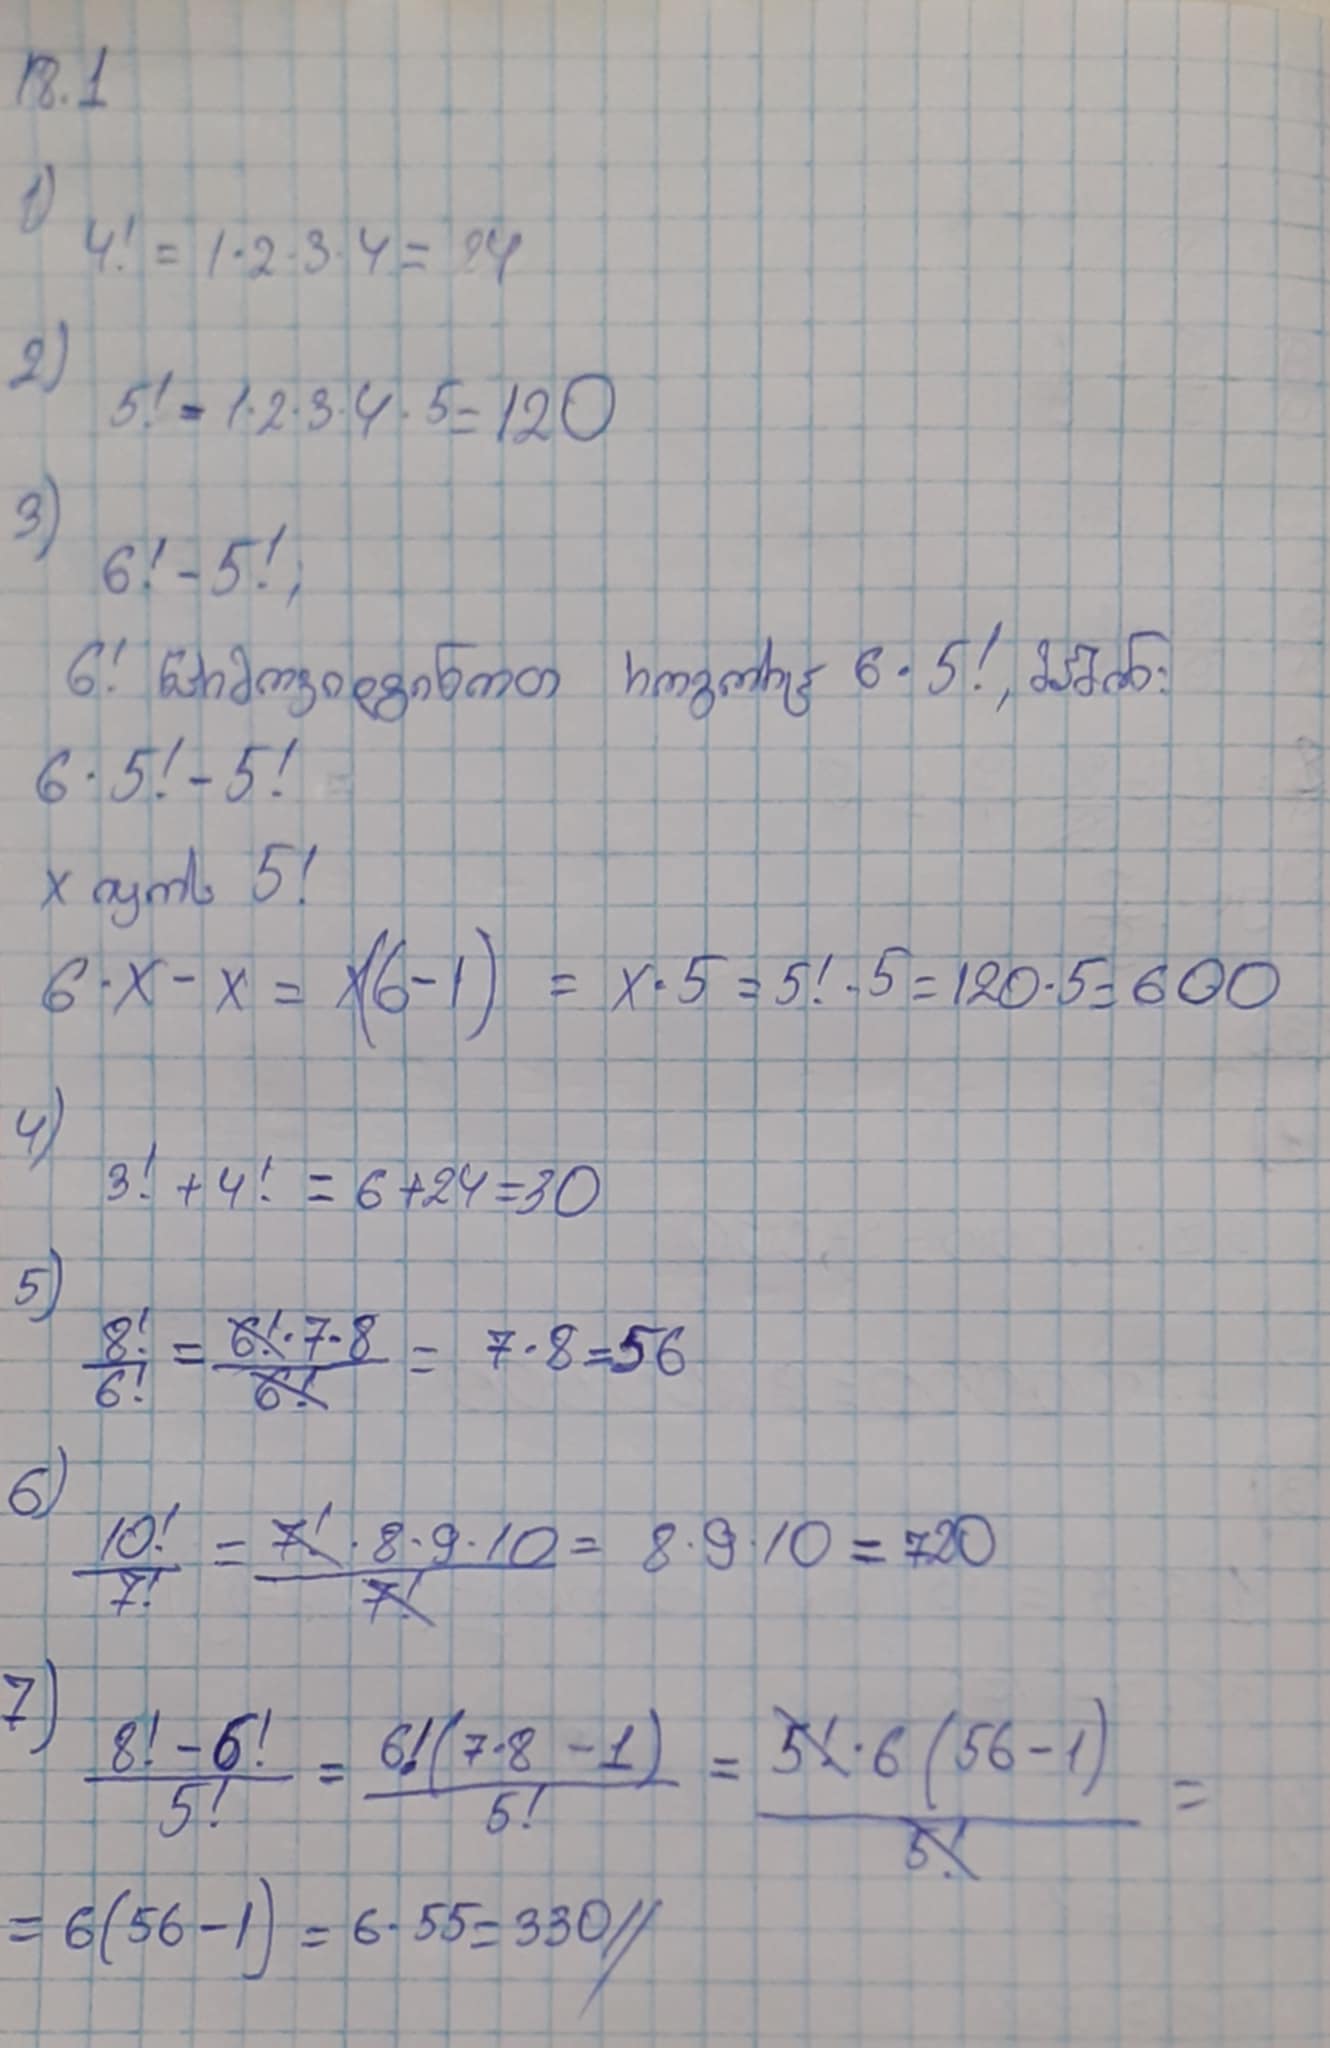 18.1
1)
4! = 1·2·3·4 = 24
2)
5! = 1·2·3·4·5 = 120
3)
6! - 5!;
6! წარმოვიდგინოთ როგორც 6·5!, მაშინ:
6·5! - 5!
x იყოს 5!
6·x - x = x(6-1) = x·5 = 5!·5 = 120·5 = 600
4)
3! + 4! = 6 + 24 = 30
5)
8!/6! = 6!·7·8/6! = 7·8 = 56
6)
10!/7! = 7!·8·9·10/7! = 8·9·10 = 720
7)
8! - 6!/5! = 6!(7·8 - 1)/5! = 5!·6(56-1)/5! =
= 6(56-1) = 6·55 = 330//